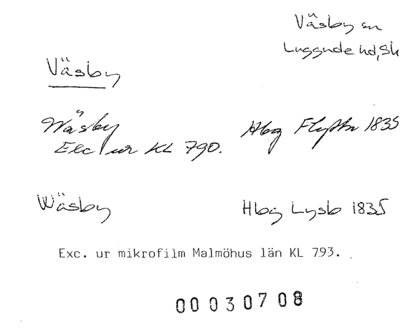 Väsby sn
Luggude hd, Sk
Väsby
Wäsby Hbg Flyttn 1835
Exc ur KL 790.
Wäsby Hbg Lysb 1835
Exc. ur mikrofilm Malmöhus län KL 793.
00030708